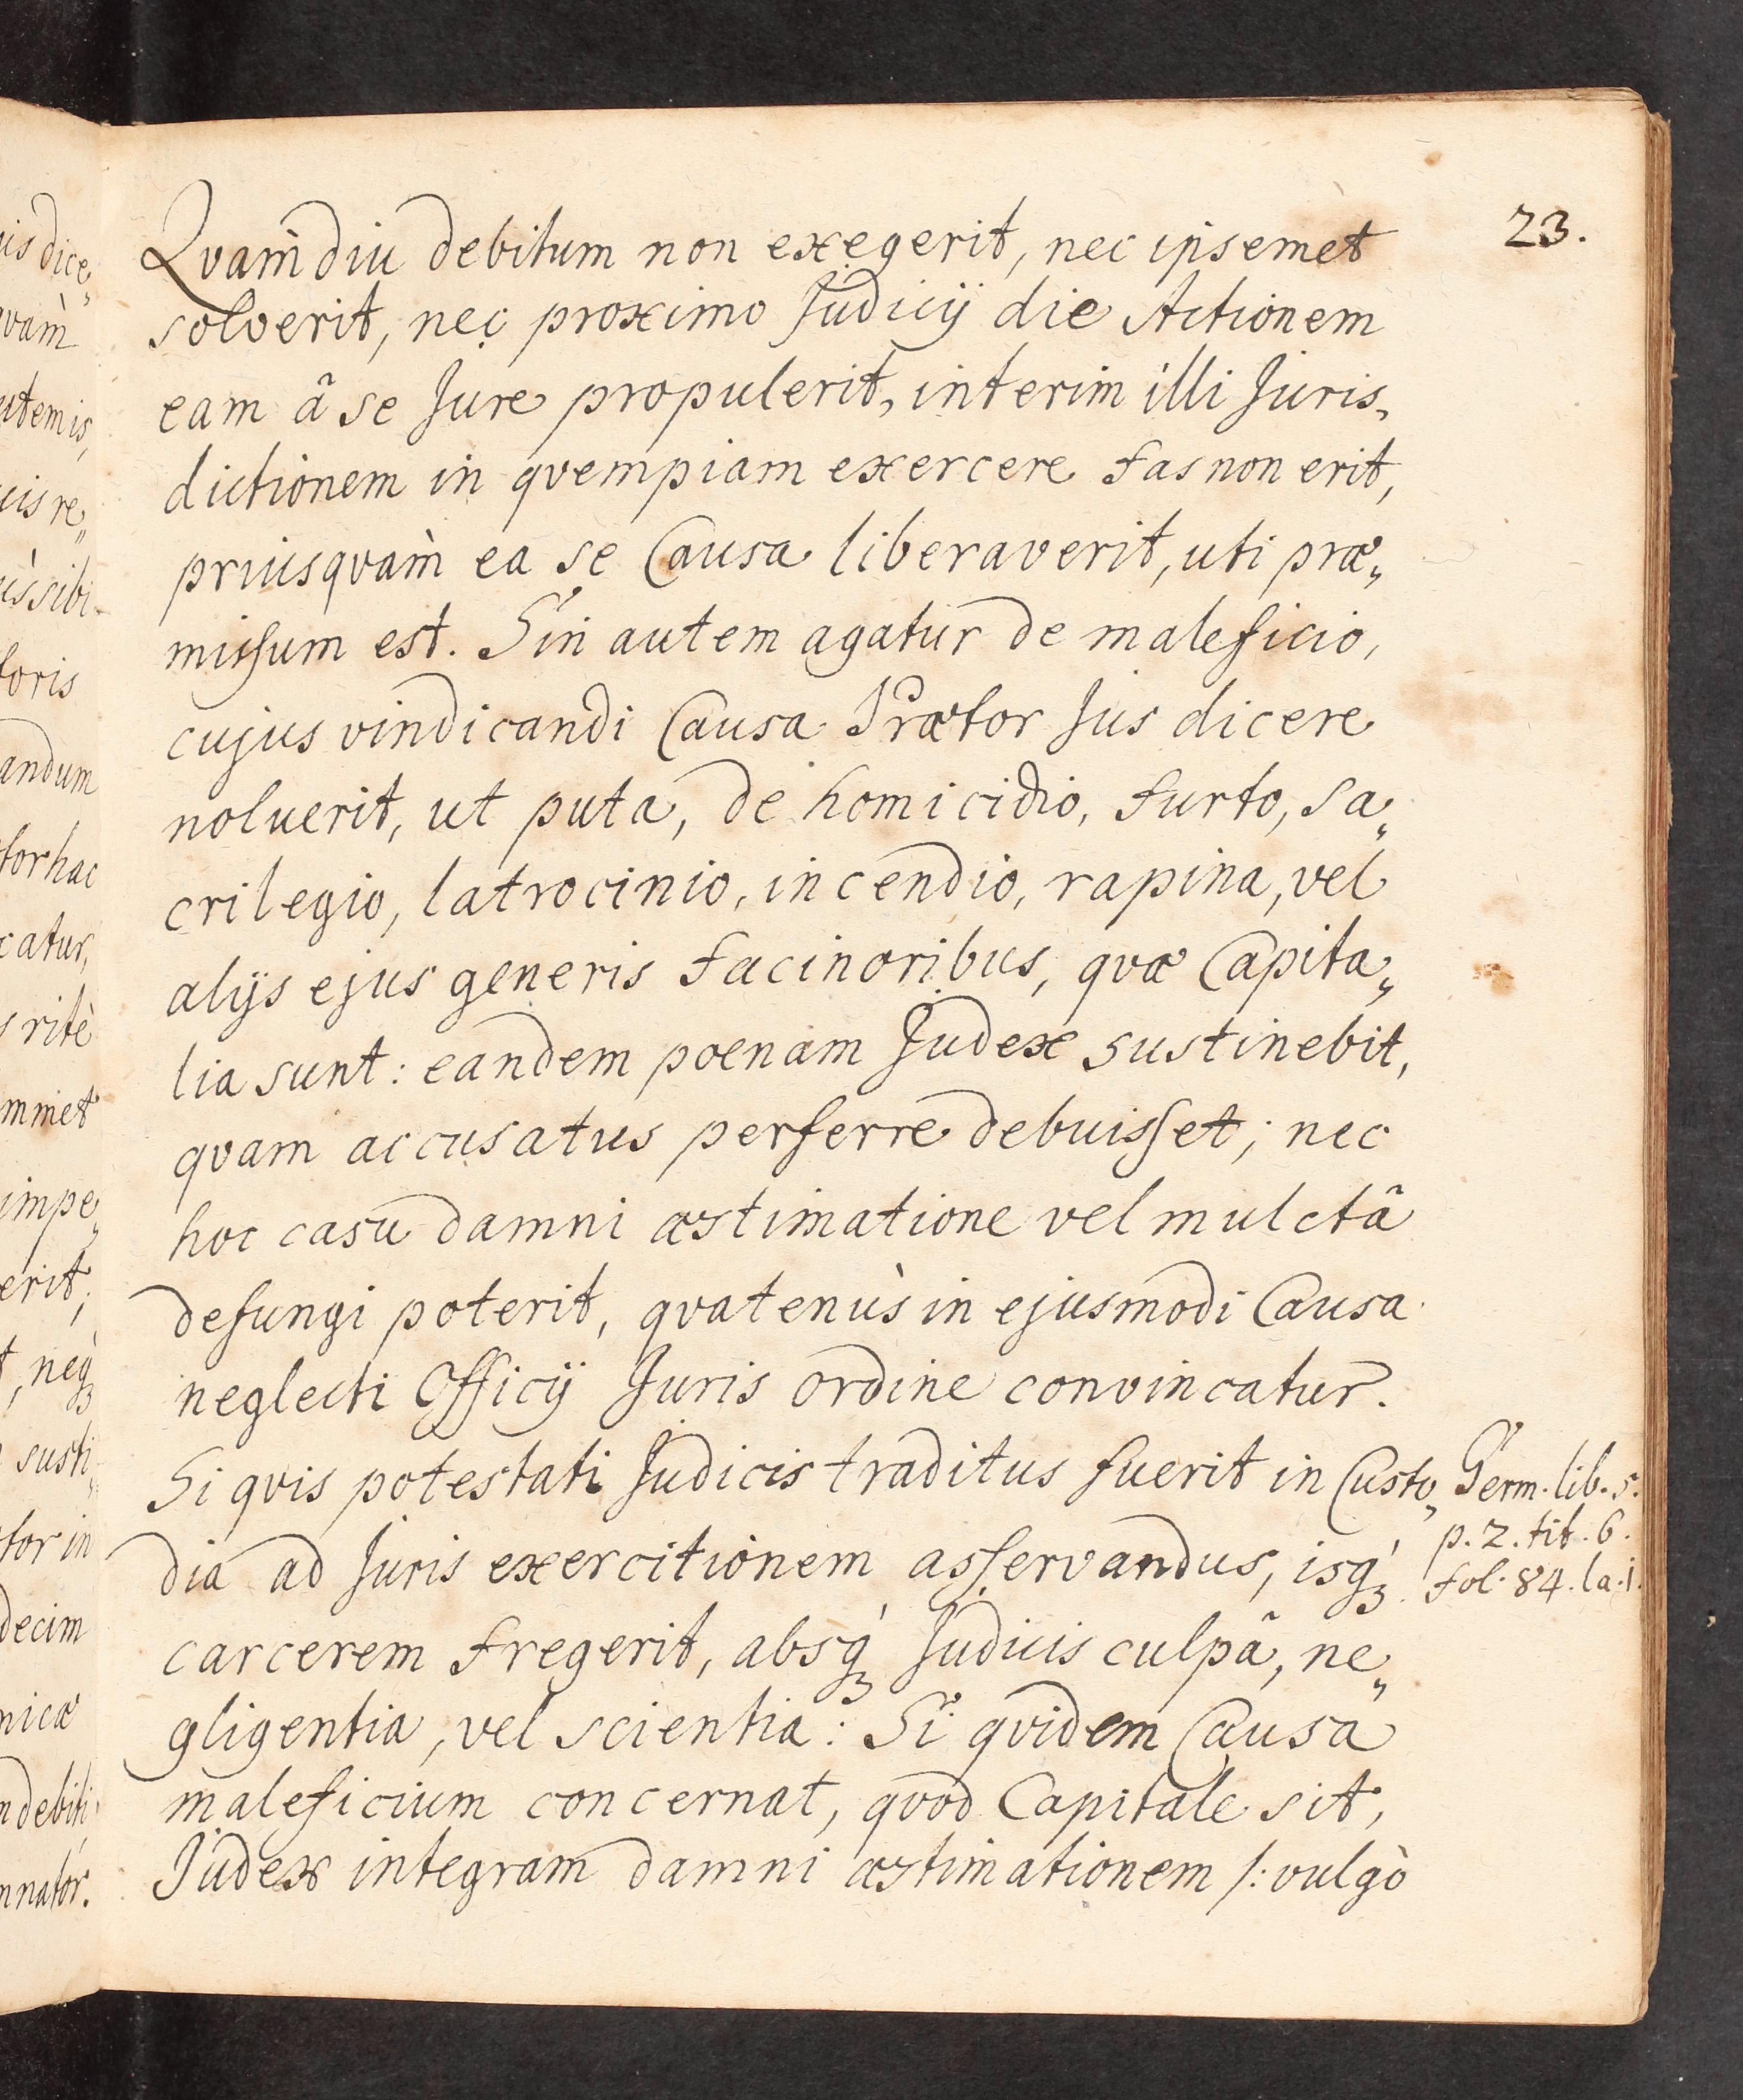 23.
Qvam̀diu debitum non exegerit, nec ipsemet
solverit, nec proximo Judicij die Actionem
eam â se Jure propulerit, interim illi Juris„
dictionem in qvempiam exercere fas non erit,
priusqvam̀ ea se Causa liberaverit, uti præ„
missum est. Sin autem agatur de maleficio,
cujus vindicandi Causa Prætor Jus dicere
noluerit, ut puta, de homicidio, furto, sa„
crilegio, latrocinio, incendio, rapina, vel
alijs ejus generis facinoribus, qvæ Capita„
lia sunt: eandem poenam Judex sustinebit,
qvam accusatus perferre debuisset; nec
hoc casu damni æstimatione vel mulctâ
defungi poterit, qvatenùs in ejusmodi Causa
neglecti Officij Juris ordine convincatur.
Si qvis potestati Judicis traditus fuerit in Custo„
dia ad Juris exercitionem asservandus, isq́ꝫ
carcerem fregerit, absq́ꝫ Judicis culpâ, ne„
gligentia, vel scientia: Si qvidem Causa
maleficium concernat, qvod Capitale sit,
Judex integram damni æstimationem /: vulgò
Germ. lib. 5.
p. 2. tit. 6.
fol. 84. la. i.
is dice„
vam̀
utem is,
uis re„
ùs sibi
toris
andum
tor hac
catur,
s ritè
mmet
impe„
erit;
t, neq́ꝫ
susti„
tor in
decim
nicæ
n debiti
nnator.